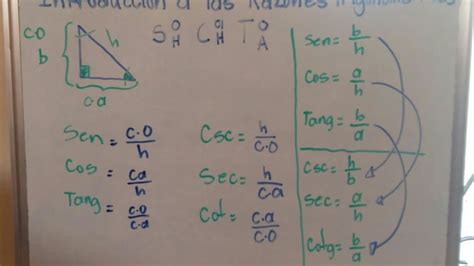 Introducción a las Razones
S O/H C A/H T O/A
CO h
b
ca
Sen = c.o/h
Cos = ca/h
Tang = c.o/c.a
Csc = h/c.o
Sec = h/c.a
Cot = c.a/c.o
Sen = b/h
Cos = a/h
Tang = b/a
Csc = h/b
Sec = a/h
Cotg = b/a